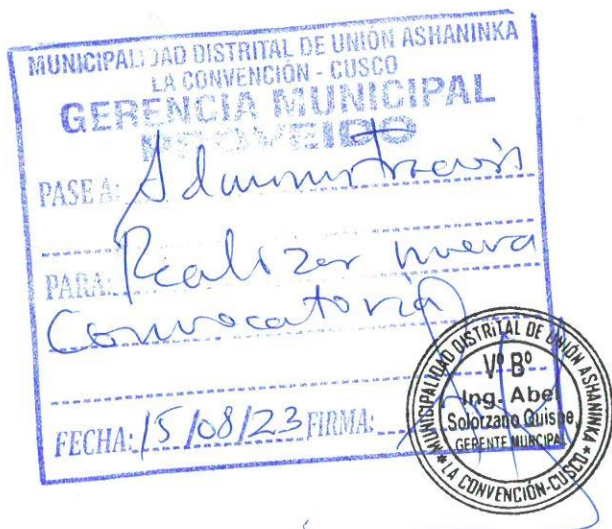 MUNICIPALIDAD DISTRITAL DE UNIÓN ASHANINKA
LA CONVENCIÓN - CUSCO
GERENCIA MUNICIPAL
PROVEIDO
PASE A: Administración
PARA: Realizar nueva
Convocatoria
FECHA: 15/08/23 FIRMA:
MUNICIPALIDAD DISTRITAL DE UNIÓN ASHANINKA
Vº Bº
Ing. Abel
Solorzano Quispe
GERENTE MUNICIPAL
* LA CONVENCIÓN-CUSCO *